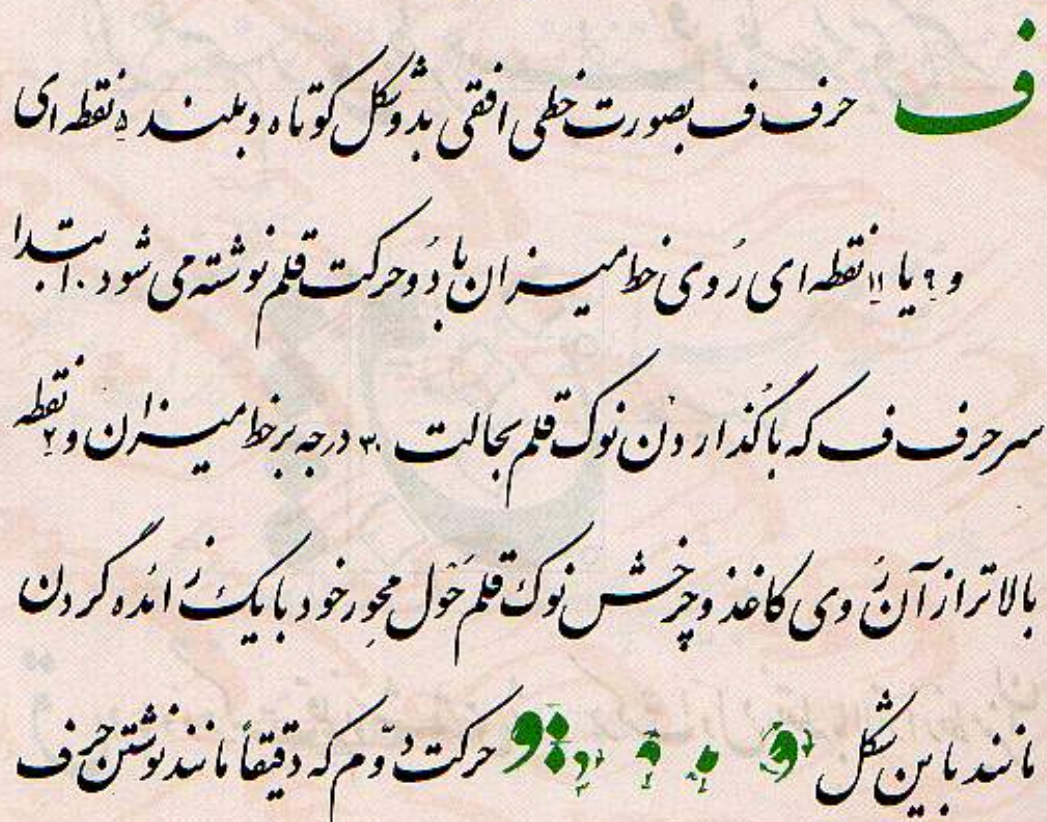 ف حرف ف بصورت خطی افقی بدو شکل کوتاه و بلند ۵ نقطه ای
و ۹ یا ۱۱ نقطه ای رُوی خط میزان با دُو حرکت قلم نوشته می شود. ابتدا
سر حرف ف که با گذاردن نوک قلم بحالت ۳۰ درجه بر خط میزان و ۲ نقطه
بالاتر از آن رُوی کاغذ و چرخش نوک قلم حَول محور خود با یک زائده گردن
مانند باین شکل حرکت دوّم که دقیقاً مانند نوشتن حرف